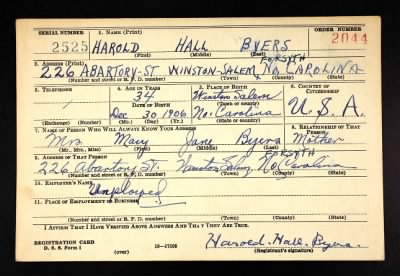 SERIAL NUMBER 1. NAME (Print) ORDER NUMBER
2525 HAROLD HALL BYERS 2044
(First) (Middle) (Last)
2. ADDRESS (Print) FORSYTH
226 ABARTORY-ST WINSTON-SALEM, NO. CAROLINA
(Number and street or R. F. D. number) (Town) (County) (State)
3. TELEPHONE 4. AGE IN YEARS 5. PLACE OF BIRTH 6. COUNTRY OF CITIZENSHIP
34 Winston Salem
DATE OF BIRTH (Town or county) U.S.A.
Dec 30 1906 No. Carolina
(Exchange) (Number) (Mo.) (Day) (Yr.) (State or country)
7. NAME OF PERSON WHO WILL ALWAYS KNOW YOUR ADDRESS 8. RELATIONSHIP OF THAT PERSON
Mrs Mary Jane Byers Mother
(Mr., Mrs., Miss) (First) (Middle) (Last)
9. ADDRESS OF THAT PERSON FORSYTH
226 St. Winston No. Carolina
(Number and street or R. F. D. number) (Town) (County) (State)
10. EMPLOYER'S NAME
Unemployed
11. PLACE OF EMPLOYMENT OR BUSINESS
(Number and street or R. F. D. number) (Town) (County) (State)
I AFFIRM THAT I HAVE VERIFIED ABOVE ANSWERS AND THAT THEY ARE TRUE.
REGISTRATION CARD
D. S. S. Form 1 16-17105 Harold Hall Byers
(over) (Registrant's signature)